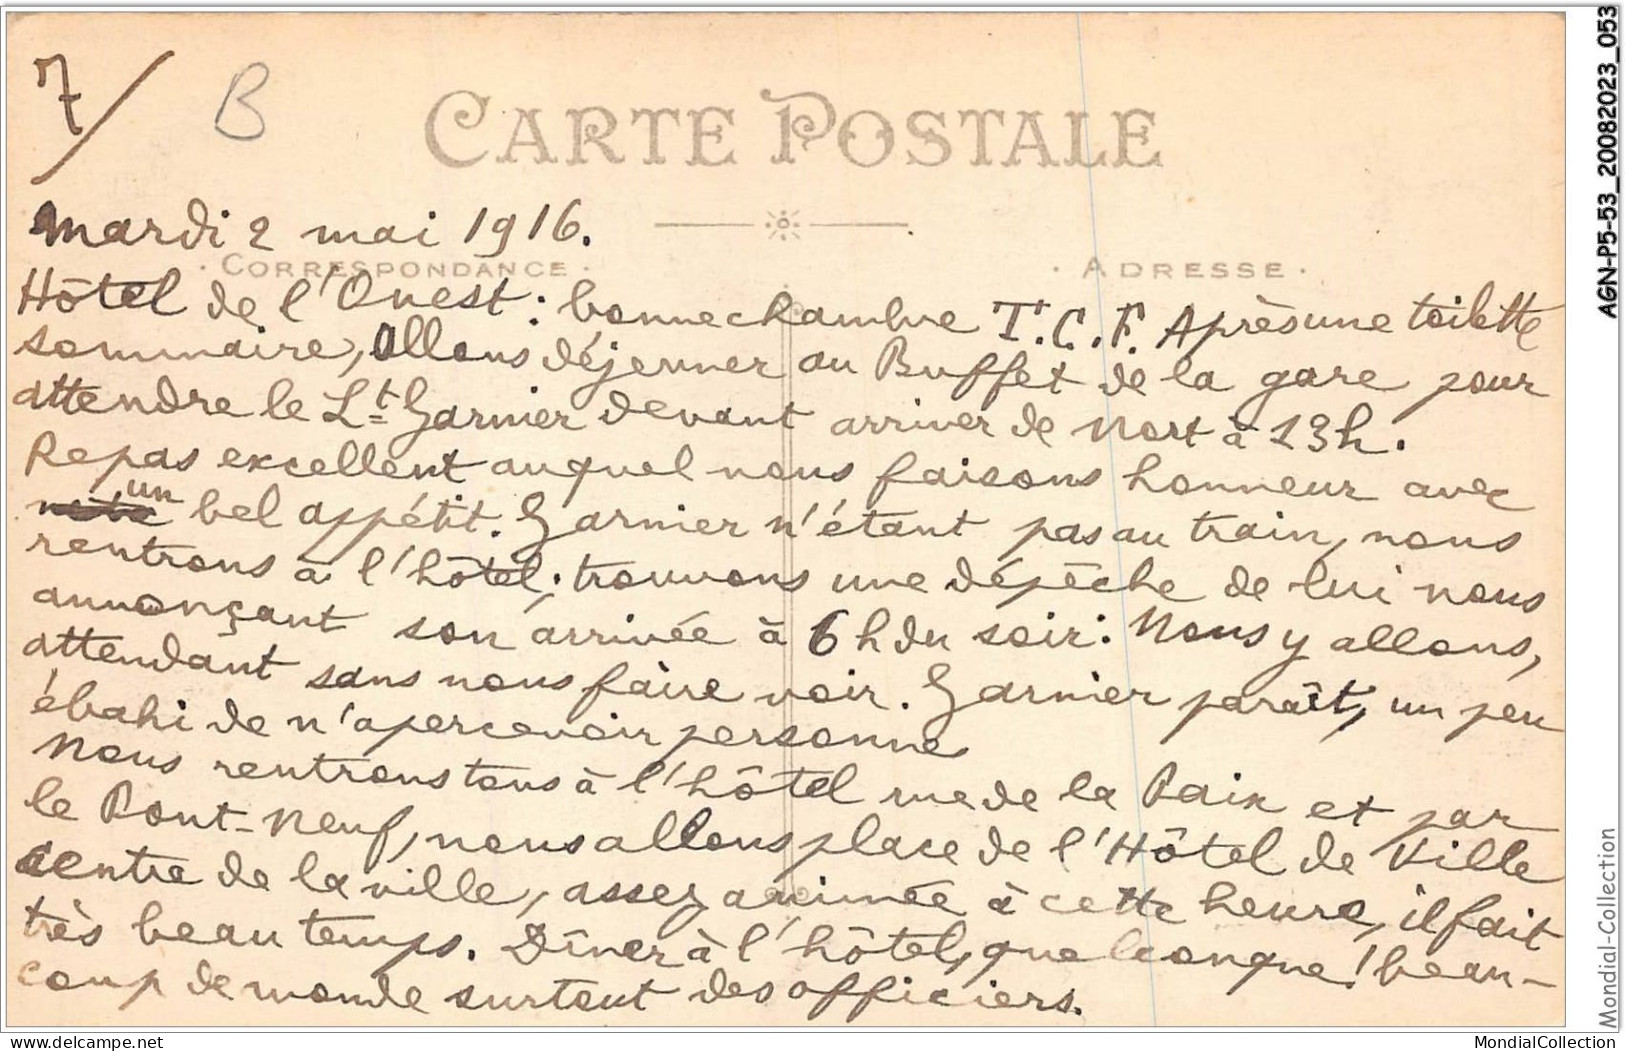 7/ B
CARTE POSTALE
mardi 2 mai 1916.
· CORRESPONDANCE · · ADRESSE ·
Hôtel de l'Ouest : bonne chambre T.C.F. Après une toilette
sommaire, allons déjeuner au Buffet de la gare pour
attendre le Lt Garnier devant arriver de Niort à 13h.
Repas excellent auquel nous faisons honneur avec
un bel appétit. Garnier n'étant pas au train, nous
rentrons à l'hôtel; trouvons une dépêche de lui nous
annonçant son arrivée à 6h du soir: Nous y allons,
attendant sans nous faire voir. Garnier paraît, un peu
ébahi de n'apercevoir personne
Nous rentrons tous à l'hôtel rue de la Paix et par
le Pont-Neuf, nous allons place de l'Hôtel de Ville
centre de la ville, assez animée à cette heure, il fait
très beau temps. Dîner à l'hôtel, quelconque! beau-
coup de monde surtout des officiers.
AGN-P5-53_20082023_053
Mondial-Collection
delcampe.net
MondialCollection